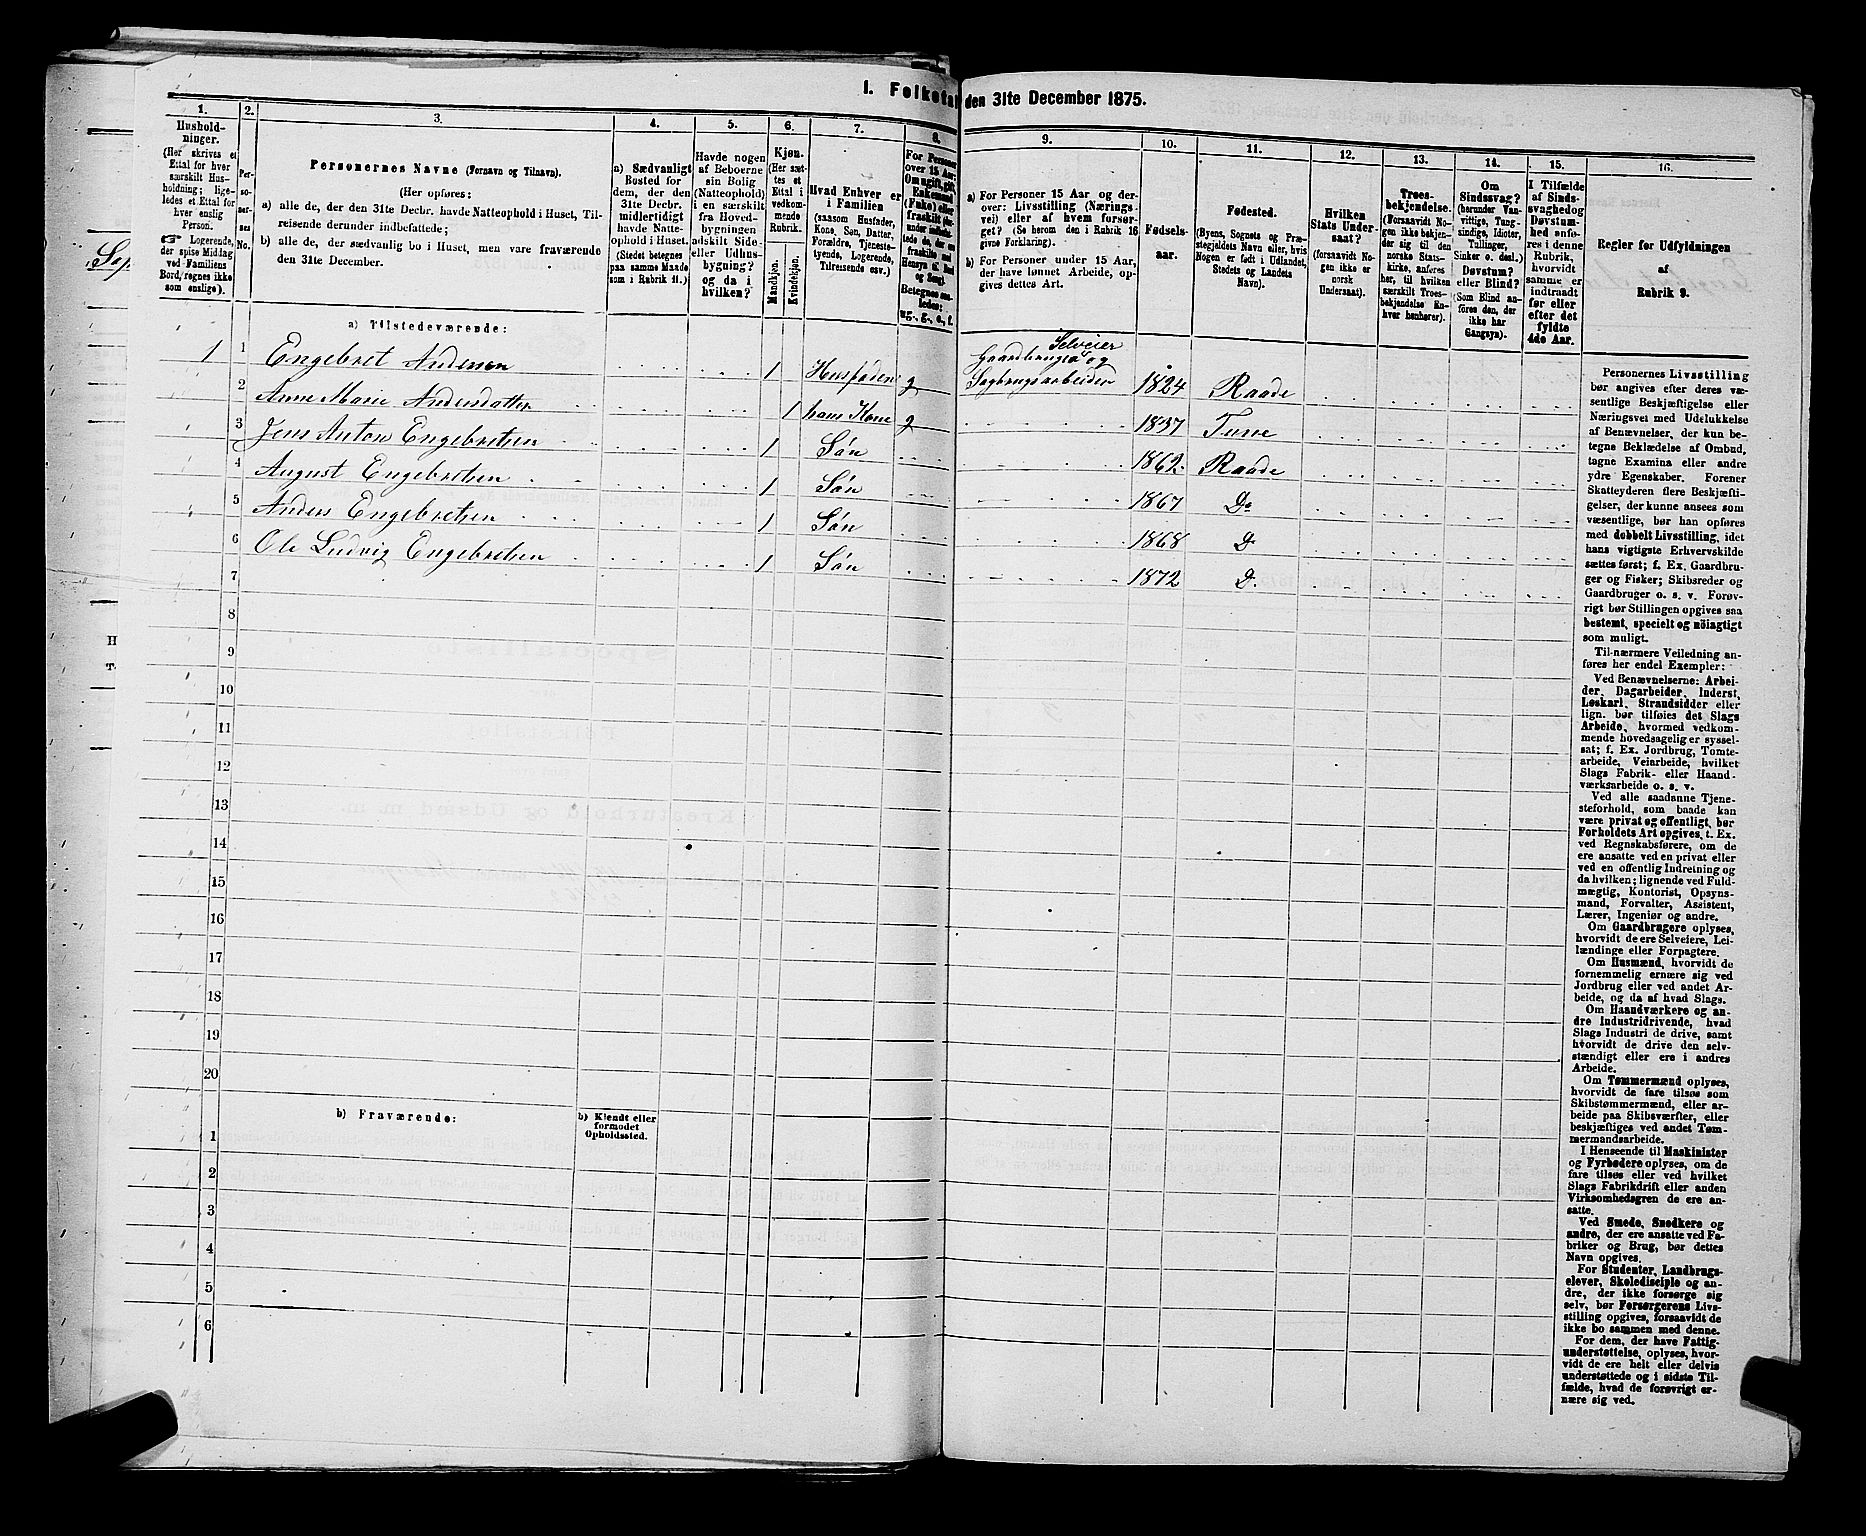 I. Folketal den 31te December 1875.
1.
2.
3.
4.
5.
6.
7.
8.
9.
10.
11.
12.
13.
14.
15.
16.
Hushold-
ninger.
(Her skrives et
Ettal for hver
særskilt Hus-
holdning; lige-
ledes et Ettal for
hver enslig
Person.
☞ Logerende,
der spise Middag
ved Familiens
Bord, regnes ikke
som enslige).
Per-
so-
ner-
nes
No.
Personernes Navne (Fornavn og Tilnavn).
(Her opføres:
a) alle de, der den 31te Decbr. havde Natteophold i Huset, Til-
reisende derunder indbefattede;
b) alle de, der sædvanlig bo i Huset, men vare fraværende
den 31te December.
a) Sædvanligt
Bosted for
dem, der den
31te Decbr.
midlertidigt
havde Natte-
ophold i Huset.
(Stedet betegnes
paa samme Maade
som i Rubrik 11.)
Havde nogen
af Beboerne
sin Bolig
(Natteophold)
i en særskilt
fra Hoved-
bygningen
adskilt Side-
eller Udhus-
bygning?
og da i
hvilken?
Kjøn.
(Her sæt-
tes et
Ettal i
vedkom-
mende
Rubrik.
Mandkjøn.
Kvindekjøn.
Hvad Enhver er
i Familien
(saasom Husfader,
Kone, Søn, Datter,
Forældre, Tjeneste-
tyende, Logerende,
Tilreisende osv.)
For Personer
over 15 Aar:
Om ugift, gift,
Enkemand
(Enke) eller
fraskilt
Betegnes saa-
ledes:
ug., g., e., f.
a) For Personer 15 Aar og der-
over: Livsstilling (Nærings-
vei) eller af hvem forsør-
get? (Se herom den i Rubrik 16
givne Forklaring).
b) For Personer under 15 Aar,
der have lønnet Arbeide, op-
gives dettes Art.
Fødsels-
aar.
Fødested.
(Byens, Sognets og Præ-
stegjeldets Navn eller, hvis
Nogen er født i Udlandet,
Stedets og Landets
Navn).
Hvilken
Stats Under-
saat?
(forsaavidt No-
gen ikke er
norsk
Undersaat).
Troes-
bekjendelse.
(Forsaavidt No-
gen ikke bekjen-
der sig til den
norske Stats-
kirke, anføres
her, til hvilken
særskilt Troes-
bekjendelse En-
hver henhører).
Om
Sindssvag?
(herunder Van-
vittige, Tung-
sindige, Idioter,
Tullinger,
Sinker o. desl.)
Døvstum?
eller Blind?
(Som Blind an-
føres den, der
ikke har
Gangsyn).
I Tilfælde
af Sinds-
svaghed og
Døvstum-
hed anfø-
res i denne
Rubrik,
hvorvidt
samme er
indtraadt
før eller
efter det
fyldte
4de Aar.
Regler for Udfyldningen
af
Rubrik 9.
a) Tilstedeværende:
1 1 Engebret Andersen 1 Husfader g Gaardbruger Selveier og
Sagbrugsarbeider 1824 Raade
2 Anne Marie Andersdatter 1 hans Kone g 1837 Tune
3 Jens Anton Engebretsen 1 Søn 1862 Raade
4 August Engebretsen 1 Søn 1867 Do
5 Anders Engebretsen 1 Søn 1868 D
6 Ole Ludvig Engebretsen 1 Søn 1872 D.
7
8
9
10
11
12
13
14
15
16
17
18
19
20
b) Fraværende:
b) Kjendt eller
formodet
Opholdssted.
1
2
3
4
5
6
Personernes Livsstilling
bør angives efter deres væ-
sentlige Beskjæftigelse eller
Næringsvei med Udelukkelse
af Benævnelser, der kun be-
tegne Beklædelse af Ombud,
tagne Examina eller andre
ydre Egenskaber. Forener
Skatteyderen flere Beskjæfti-
gelser, der kunne ansees som
væsentlige, bør han opføres
med dobbelt Livsstilling, idet
hans vigtigste Erhvervskilde
sættes først; f. Ex. Gaardbru-
ger og Fisker; Skibsreder og
Gaardbruger o. s. v. Forøv-
rigt bør Stillingen opgives saa
bestemt, specielt og nøiagtigt
som muligt.
Til nærmere Veiledning an-
føres her endel Exempler:
Ved Benævnelserne: Arbei-
der, Dagarbeider, Inderst,
Løskarl, Strandsidder eller
lign. bør tilføies det Slags
Arbeide, hvormed vedkom-
mende hovedsagelig er syssel-
sat; f. Ex. Jordbrug, Tomte-
arbeide, Veiarbeide, hvilket
Slags Fabrik- eller Haand-
værksarbeide o. s. v.
Ved alle saadanne Tjene-
steforhold, som baade kan
være privat og offentligt, bør
Forholdets Art opgives, t. Ex.
ved Regnskabsførere, om de
ere ansatte ved en privat eller
ved en offentlig Indretning og
da hvilken; lignende ved Fuld-
mægtig, Kontorist, Opsyns-
mand, Forvalter, Assistent,
Lærer, Ingeniør og andre.
Om Gaardbrugere oplyses,
hvorvidt de ere Selveiere, Lei-
lændinge eller Forpagtere.
Om Husmænd, hvorvidt de
fornemmelig ernære sig ved
Jordbrug eller ved andet Ar-
beide, og da af hvad Slags.
Om Haandværkere og an-
dre Industridrivende, hvad
Slags Industri de drive, samt
hvorvidt de drive den selv-
stændigt eller ere i andres
Arbeide.
Om Tømmermænd oplyses,
hvorvidt de fare tilsøs som
Skibstømmermænd, eller ar-
beide paa Skibsværfter, eller
beskjæftiges ved andet Tøm-
mermandsarbeide.
I Henseende til Maskinister
og Fyrbødere oplyses, om de
fare tilsøs eller ved hvilket
Slags Fabrikdrift eller anden
Virksomhedsgren de ere an-
satte.
Ved Smede, Snedkere og
andre, der ere ansatte ved Fa-
briker og Brug, bør dettes
Navn opgives.
For Studenter, Landbrugs-
elever, Skoledisciple og an-
dre, der ikke forsørge sig
selv, bør Forsørgerens Livs-
stilling opgives, forsaavidt de
ikke bo sammen med denne.
For dem, der have Fattig-
understøttelse, oplyses, hvor-
vidt de ere helt eller delvis
understøttede og i sidste Til-
fælde, hvad de forøvrigt er-
nære sig ved.